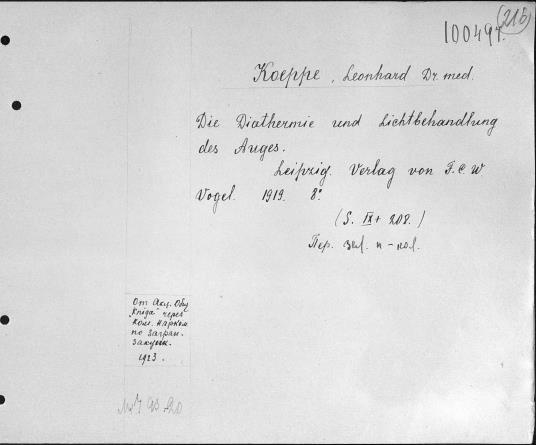 (21б)
100497.
Koeppe, Leonhard Dr. med.
Die Diathermie und Lichtbehandlung
des Auges.
Leipzig. Verlag von F.C.W
Vogel. 1919. 8°.
(S. IX + 208.)
Пер. зел. п-кол.
От Акц. Общ
"Книга" через
Ком. Нарком
по Загран.
Закупк.
1923.